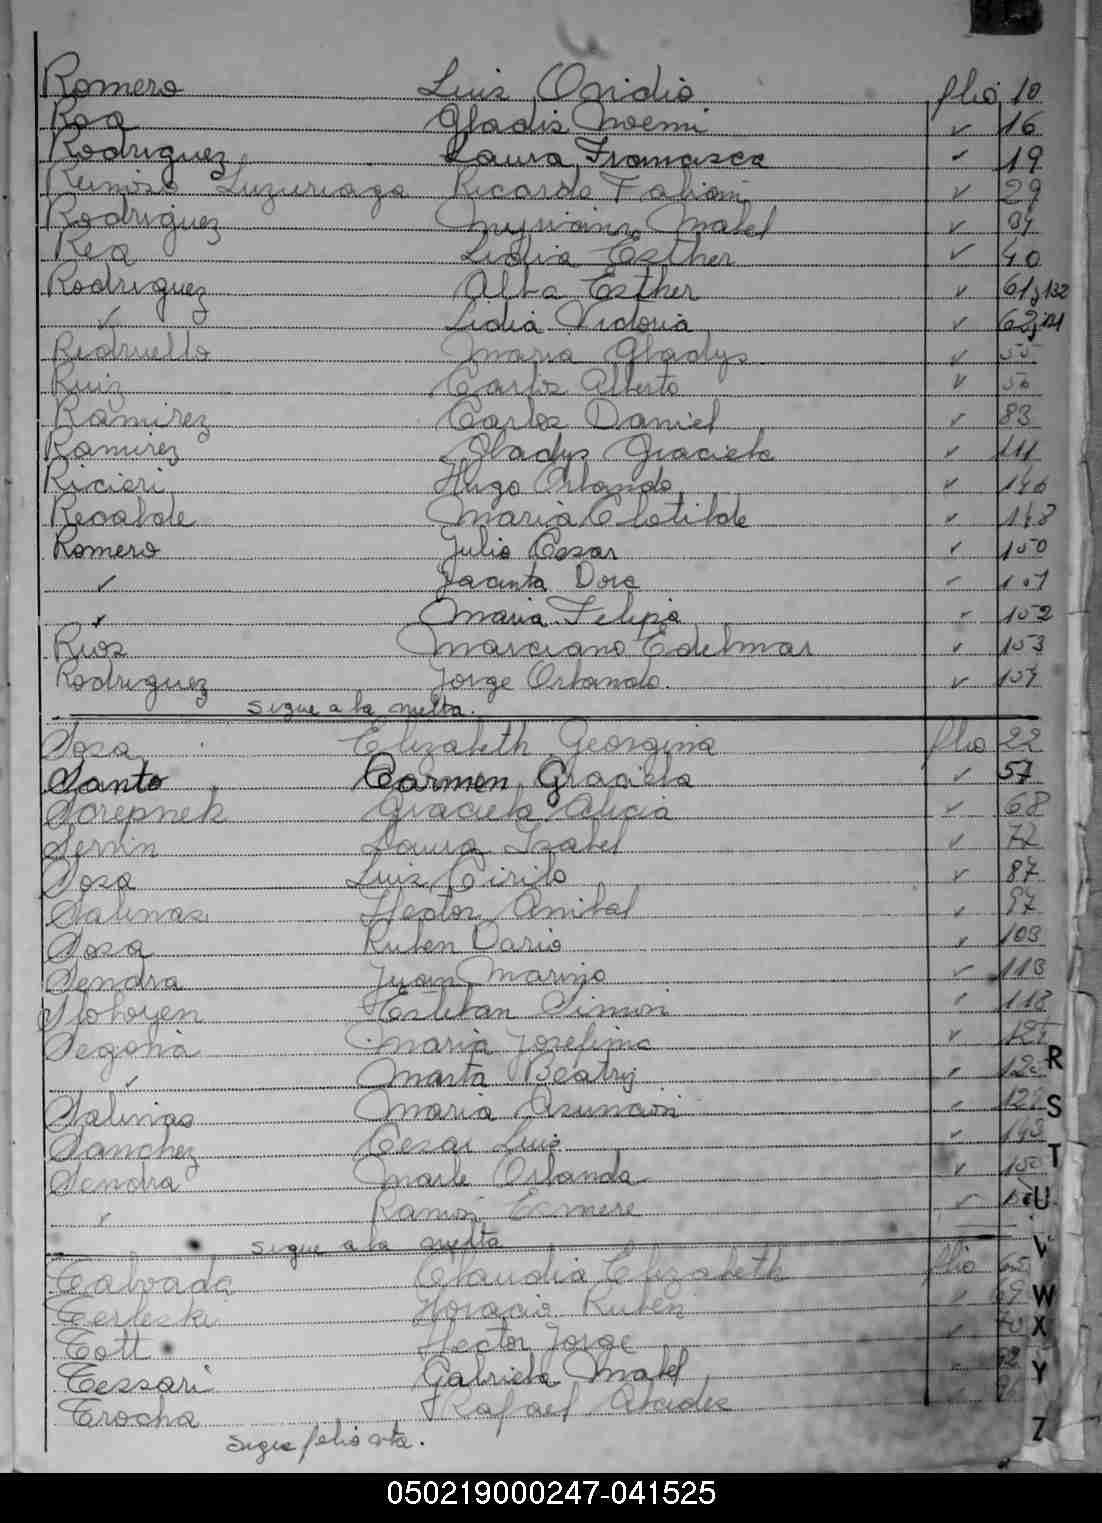 Romero Luis Ovidio flio 10
Roa Gladis Noemi ✓ 16
Rodriguez Laura Francisca ✓ 19
Luzuriaga Ricardo Fabian ✓ 29
Rodriguez Myriam Mabel ✓ 34
Rea Lidia Esther ✓ 40
Rodriguez Alba Esther ✓ 61,132
✓ Lidia Victoria ✓ 62,131
Maria Gladys ✓ 55
Ruiz Carlos Alberto ✓ 56
Ramirez Carlos Daniel ✓ 83
Ramirez Gladys Graciela ✓ 111
Ricieri Hugo Orlando ✓ 146
Recalde Maria Clotilde ✓ 148
Romero Julio Cesar ✓ 150
✓ Jacinta Dora ✓ 151
✓ Maria Felipa ✓ 152
Rios Marciano Edelmar ✓ 153
Rodriguez Jorge Orlando. ✓ 154
Sigue a la vuelta.
Sosa Elizabeth Georgina flio 22
Santo Carmen Graciela ✓ 57
Screpnek Graciela Alicia ✓ 68
Servin Laura Isabel ✓ 72
Sosa Luis Cirilo ✓ 87
Salinas Hector Anibal ✓ 97
Sosa Ruben Dario ✓ 103
Sendra Juan Marino ✓ 113
Esteban Simon ✓ 118
Segovia Maria Josefina ✓
✓ Marta Beatriz ✓
Salinas Maria Asuncion ✓
Sanchez Cesar Luis ✓ 143
Sendra Orlando ✓
✓ Ramon ✓
Sigue a la vuelta
Talvada Claudia Elizabeth flio 65
Terleski Horacio Ruben ✓ 69
Tott Hector Jorge ✓ 70
Tessari Gabriela Mabel ✓ 92
Trocha Rafael Alcides ✓
Sigue folio vta.
R
S
T
U
V
W
X
Y
Z
050219000247-041525